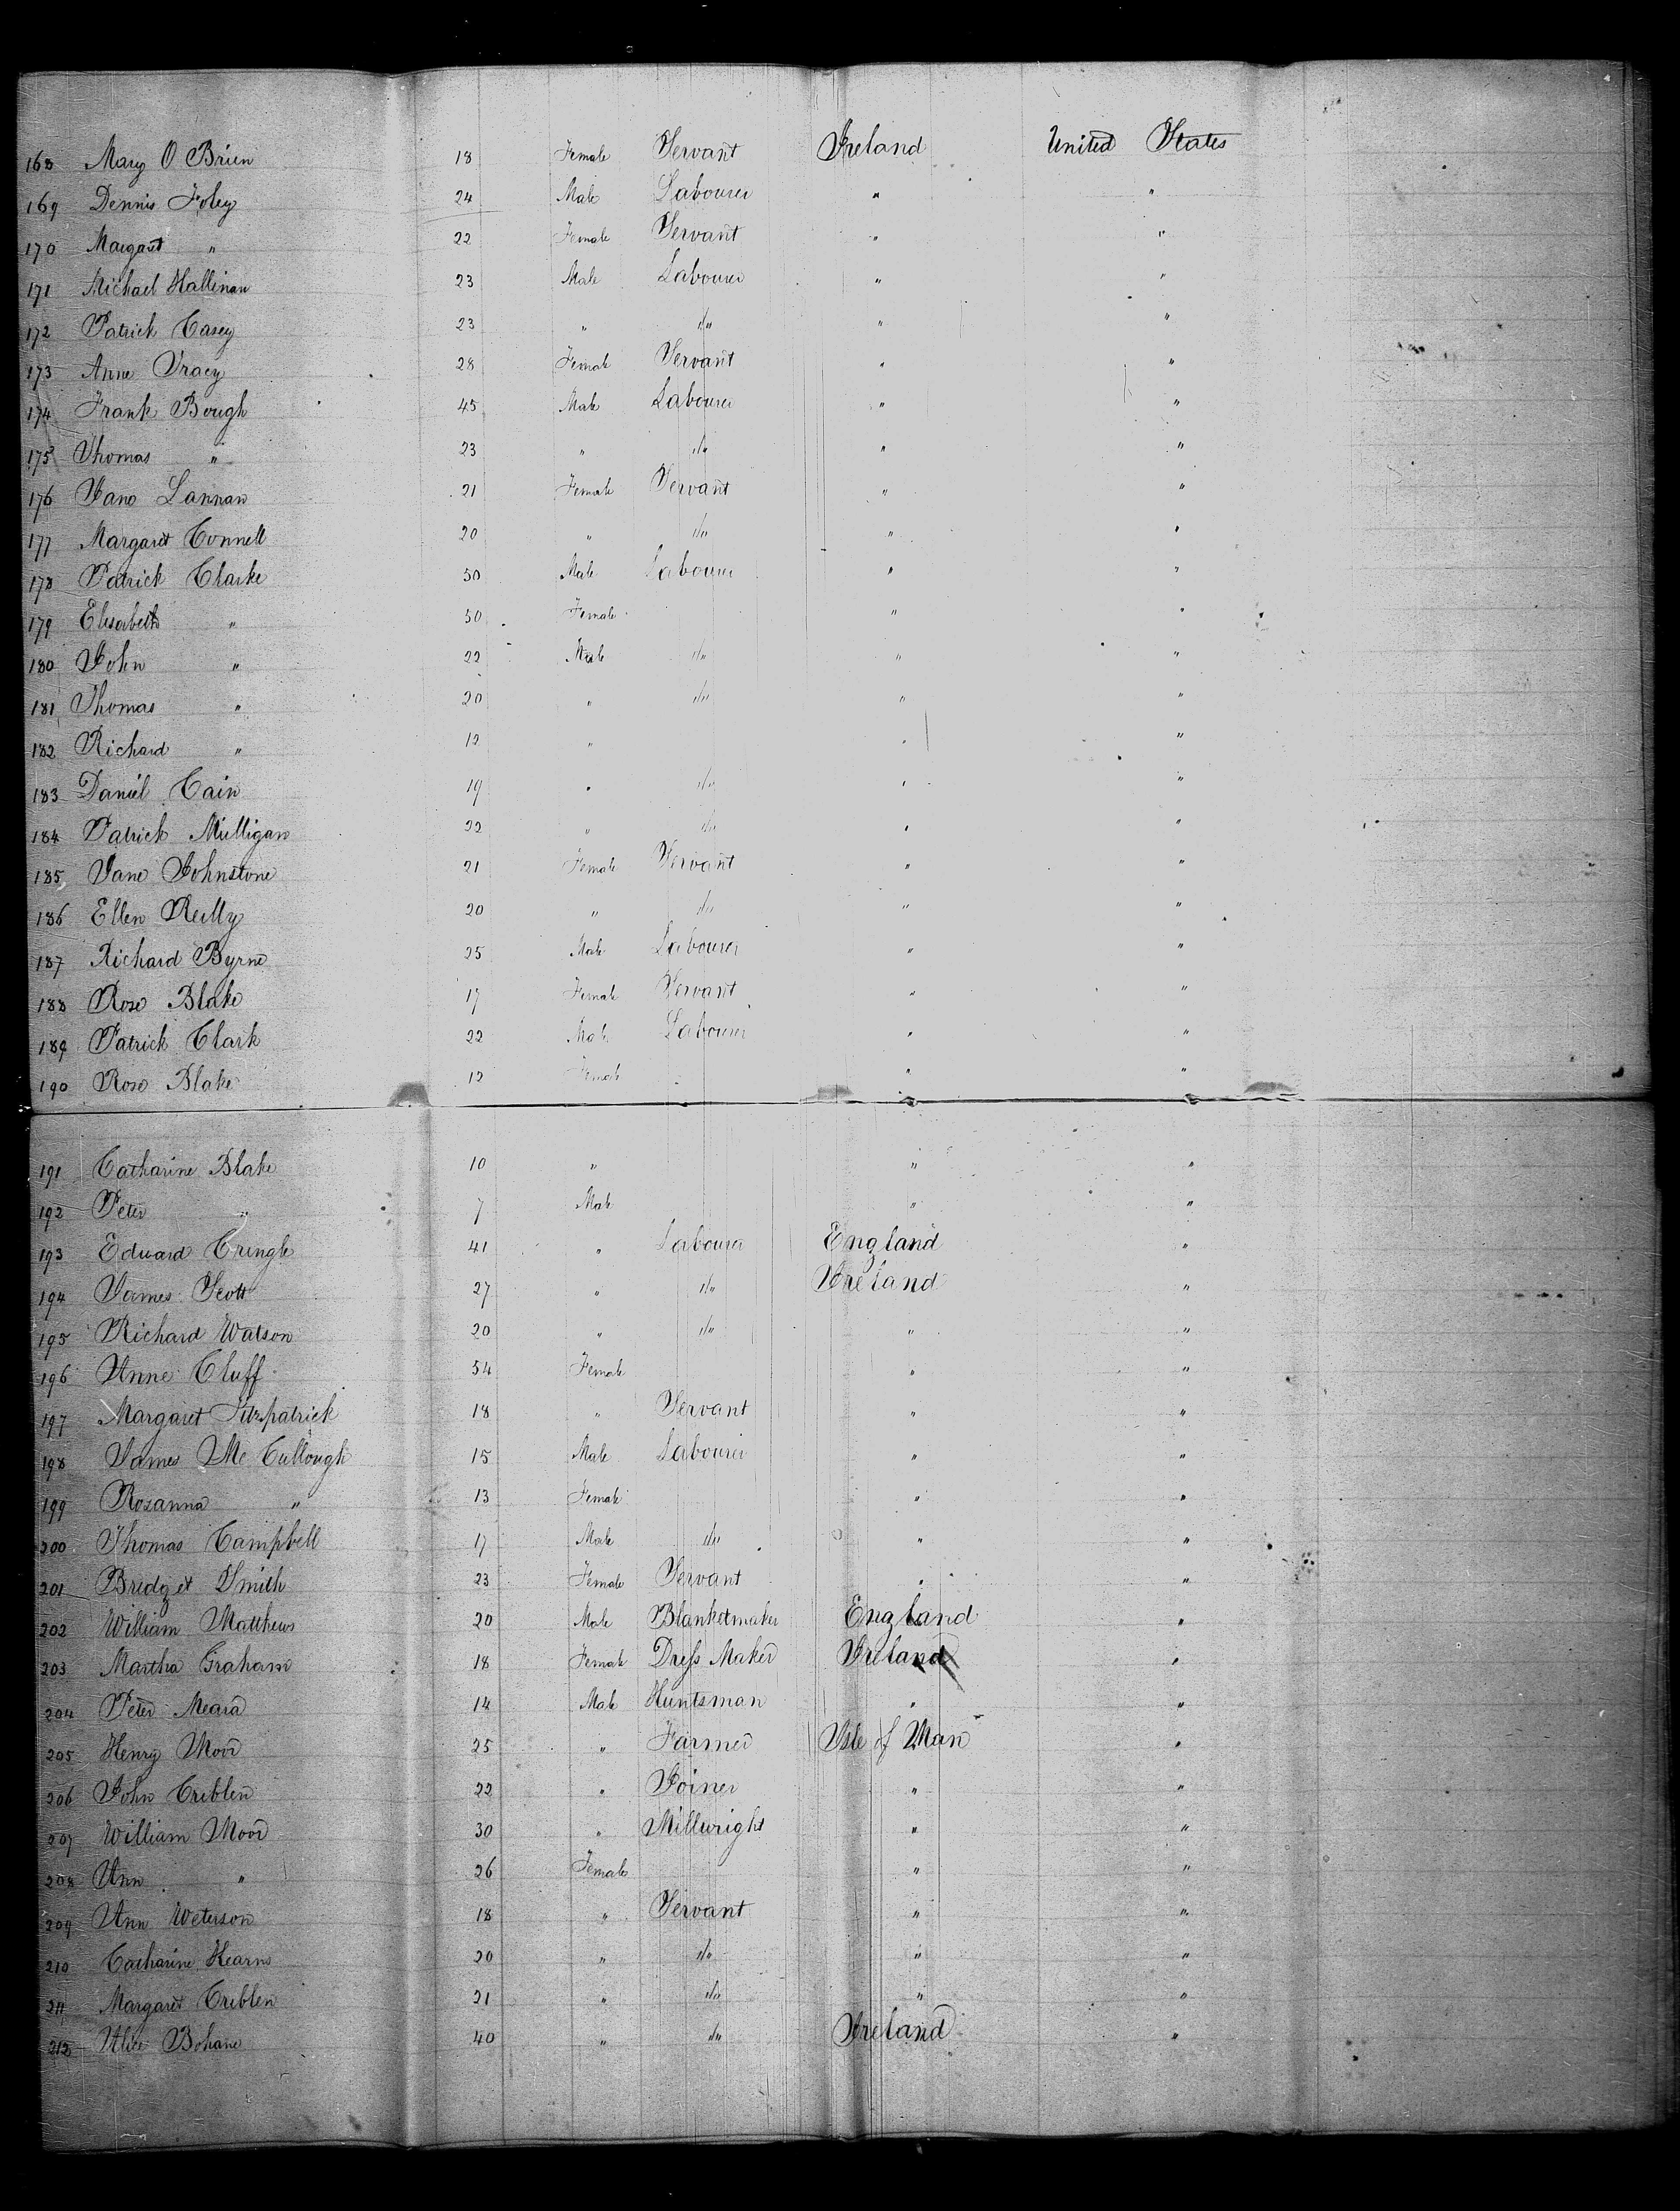 168 Mary O Brien 18 Female Servant Ireland United States
169 Dennis Foley 24 Male Labourer " "
170 Margaret " 22 Female Servant " "
171 Michael Hallinan 23 Male Labourer " "
172 Patrick Casey 23 " " " "
173 Anne Tracy 28 Female Servant " "
174 Frank Bough 45 Male Labourer " "
175 Thomas " 23 " " " "
176 Jane Lannan 21 Female Servant " "
177 Margaret Connell 20 " " " "
178 Patrick Clarke 50 Male Labourer " "
179 Elisabeth " 50 Female " "
180 John " 22 Male " " "
181 Thomas " 20 " " " "
182 Richard " 12 " " "
183 Daniel Cain 19 " " " "
184 Patrick Milligan 22 " " " "
185 Jane Johnstone 21 Female Servant " "
186 Ellen Reilly 20 " " " "
187 Richard Byrne 25 Male Labourer " "
188 Rose Blake 17 Female Servant " "
189 Patrick Clark 22 Male Labourer " "
190 Rose Blake 12 Female " "
191 Catharine Blake 10 " " "
192 Peter " 7 Male " "
193 Edward Cringle 41 " Labourer England "
194 James Scott 27 " " Ireland "
195 Richard Watson 20 " " " "
196 Anne Cluff 54 Female " "
197 Margaret Fitzpatrick 18 " Servant " "
198 James Mc Cullough 15 Male Labourer " "
199 Rosanna " 13 Female " "
200 Thomas Campbell 17 Male " " "
201 Bridget Smith 23 Female Servant " "
202 William Matthews 20 Male Blanketmaker England "
203 Martha Graham 18 Female Dress Maker Ireland "
204 Peter Meara 14 Male Huntsman " "
205 Henry Moor 25 " Farmer Isle of Man "
206 John Criblen 22 " Joiner " "
207 William Moor 30 " Millwright " "
208 Ann " 26 Female " "
209 Ann Weterson 18 " Servant " "
210 Catharine Kearns 20 " " " "
211 Margaret Criblen 21 " " " "
212 Alice Bohane 40 " " Ireland "